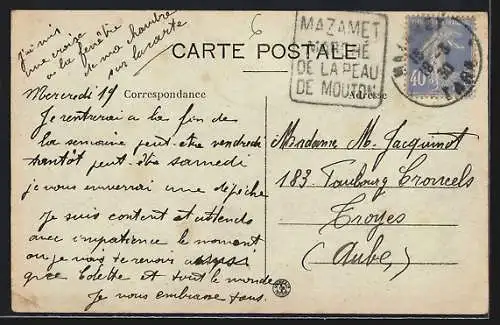 j'ai mis
une croix
a la fenêtre
de ma chambre
sur la carte
6
CARTE POSTALE
MAZAMET
MARCHÉ
DE LA PEAU
DE MOUTON
40
TARN
Correspondance
Adresse
Mercredi 19
Je rentrerai a la fin de
la semaine peut-être vendredi
tantôt peut-être samedi
je vous enverrai une depêche
Je suis content et attends
avec impatience le moment
ou je vais te revoir
que Colette et tout le monde
Je vous embrasse tous.
Madame M. Jacquinot
183. Faubourg Croncels
Troyes
(Aube)